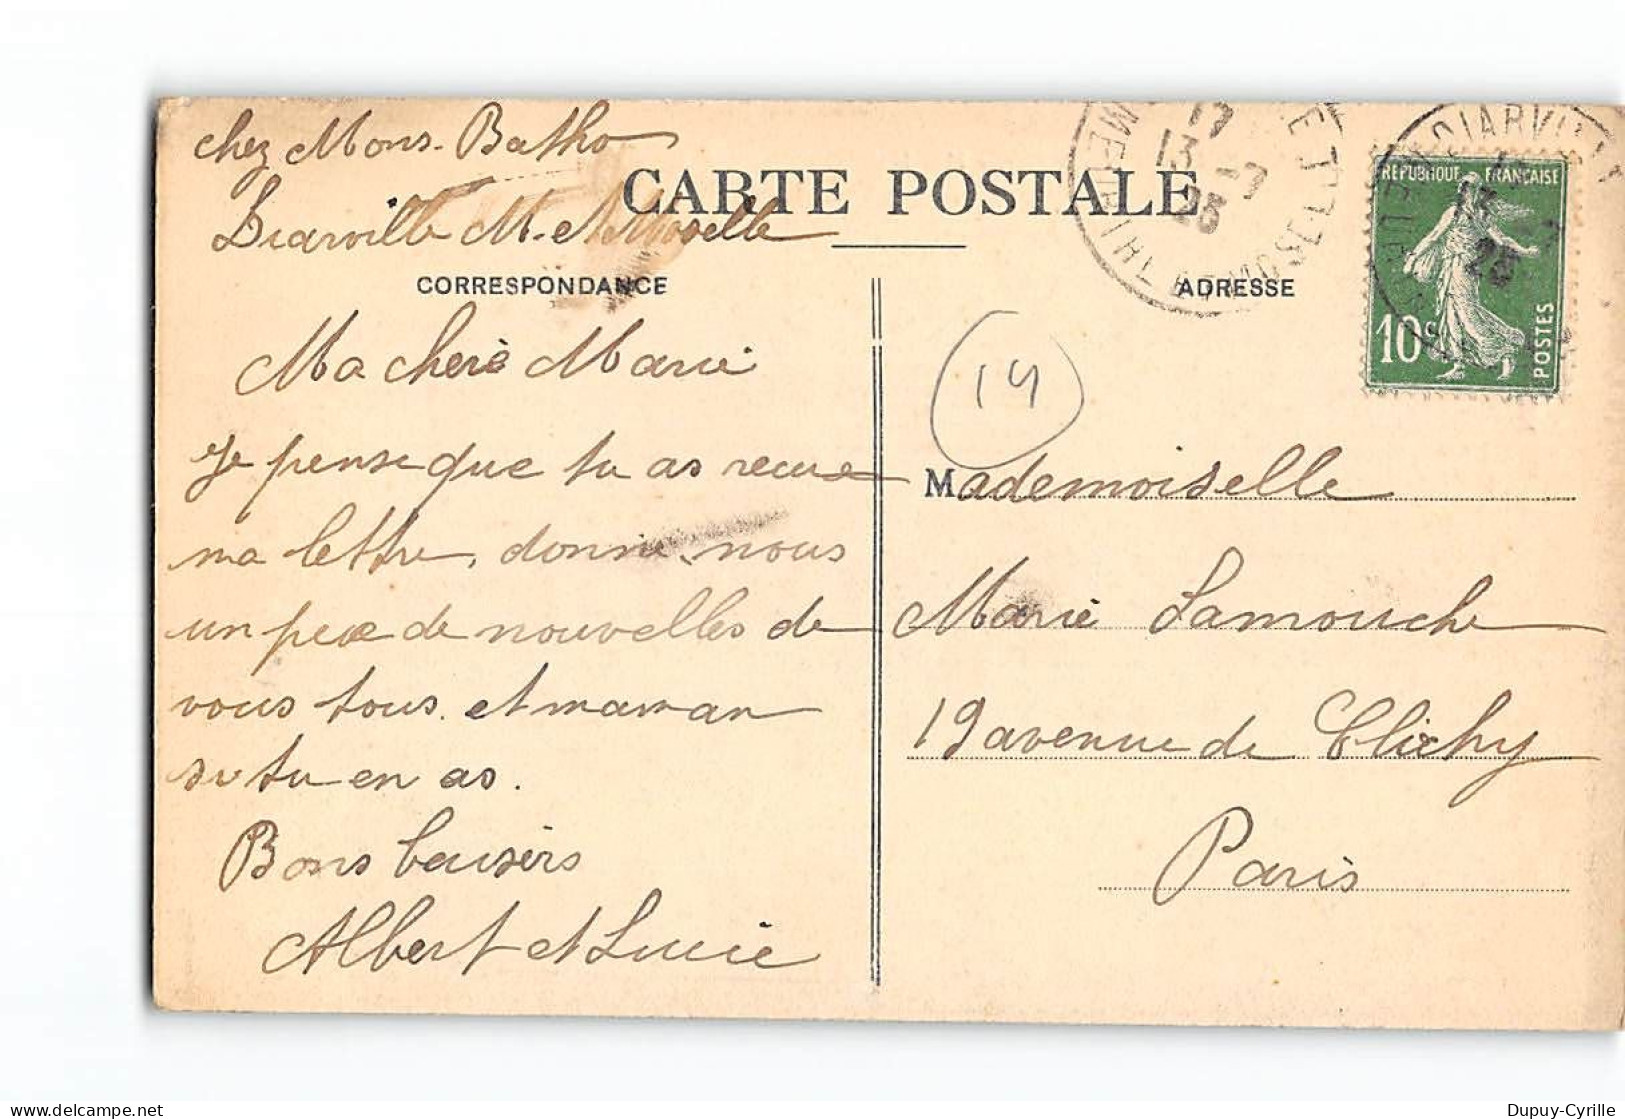 chez Mons. Batho
Diarville M. et Moselle
CARTE POSTALE
CORRESPONDANCE
Ma cheré Marie
Je pense que tu as recue
ma lettre, donne nous
un peu de nouvelles de
vous tous et maman
si tu en as.
Bons baisers
Albert et Lucie
17
13 -7
25
MEURTHE ET MOSELLE
DIARVILLE
13
25
REPUBLIQUE FRANÇAISE
10c
POSTES
ADRESSE
14
Mademoiselle
Marie Lamouche
19 avenue de Clichy
Paris
Dupuy-Cyrille